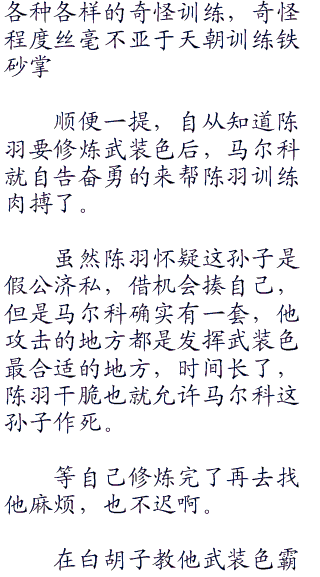 各种各样的奇怪训练，奇怪
程度丝毫不亚于天朝训练铁
砂掌
顺便一提，自从知道陈
羽要修炼武装色后，马尔科
就自告奋勇的来帮陈羽训练
肉搏了。
虽然陈羽怀疑这孙子是
假公济私，借机会揍自己，
但是马尔科确实有一套，他
攻击的地方都是发挥武装色
最合适的地方，时间长了，
陈羽干脆也就允许马尔科这
孙子作死。
等自己修炼完了再去找
他麻烦，也不迟啊。
在白胡子教他武装色霸